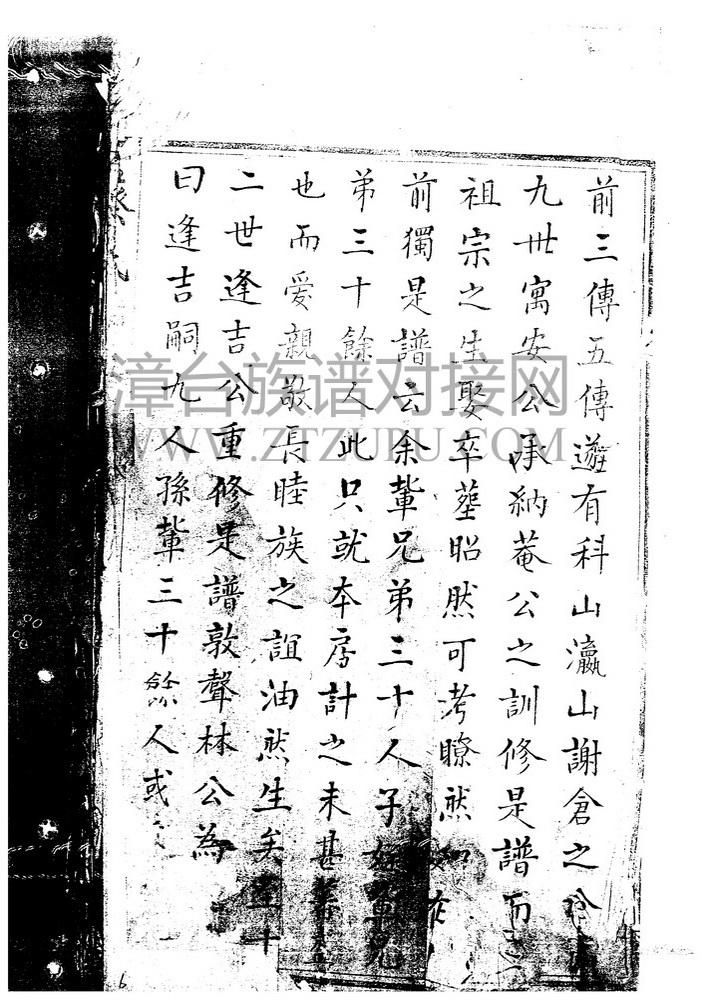 前三傳五傳遊有科山瀛山謝倉之分
九世寓安公承納菴公之訓修是譜而
祖宗之生娶卒塟昭然可考瞭然如在
前獨是譜云余輩兄弟三十人子姪輩兄
弟三十餘人此只就本房計之未甚
也而愛親敬長睦族之誼油然生矣至十
二世逢吉公重修是譜敦聲林公為
曰逢吉嗣九人孫輩三十餘人或
漳台族谱对接网
WWW.ZTZUPU.COM
6